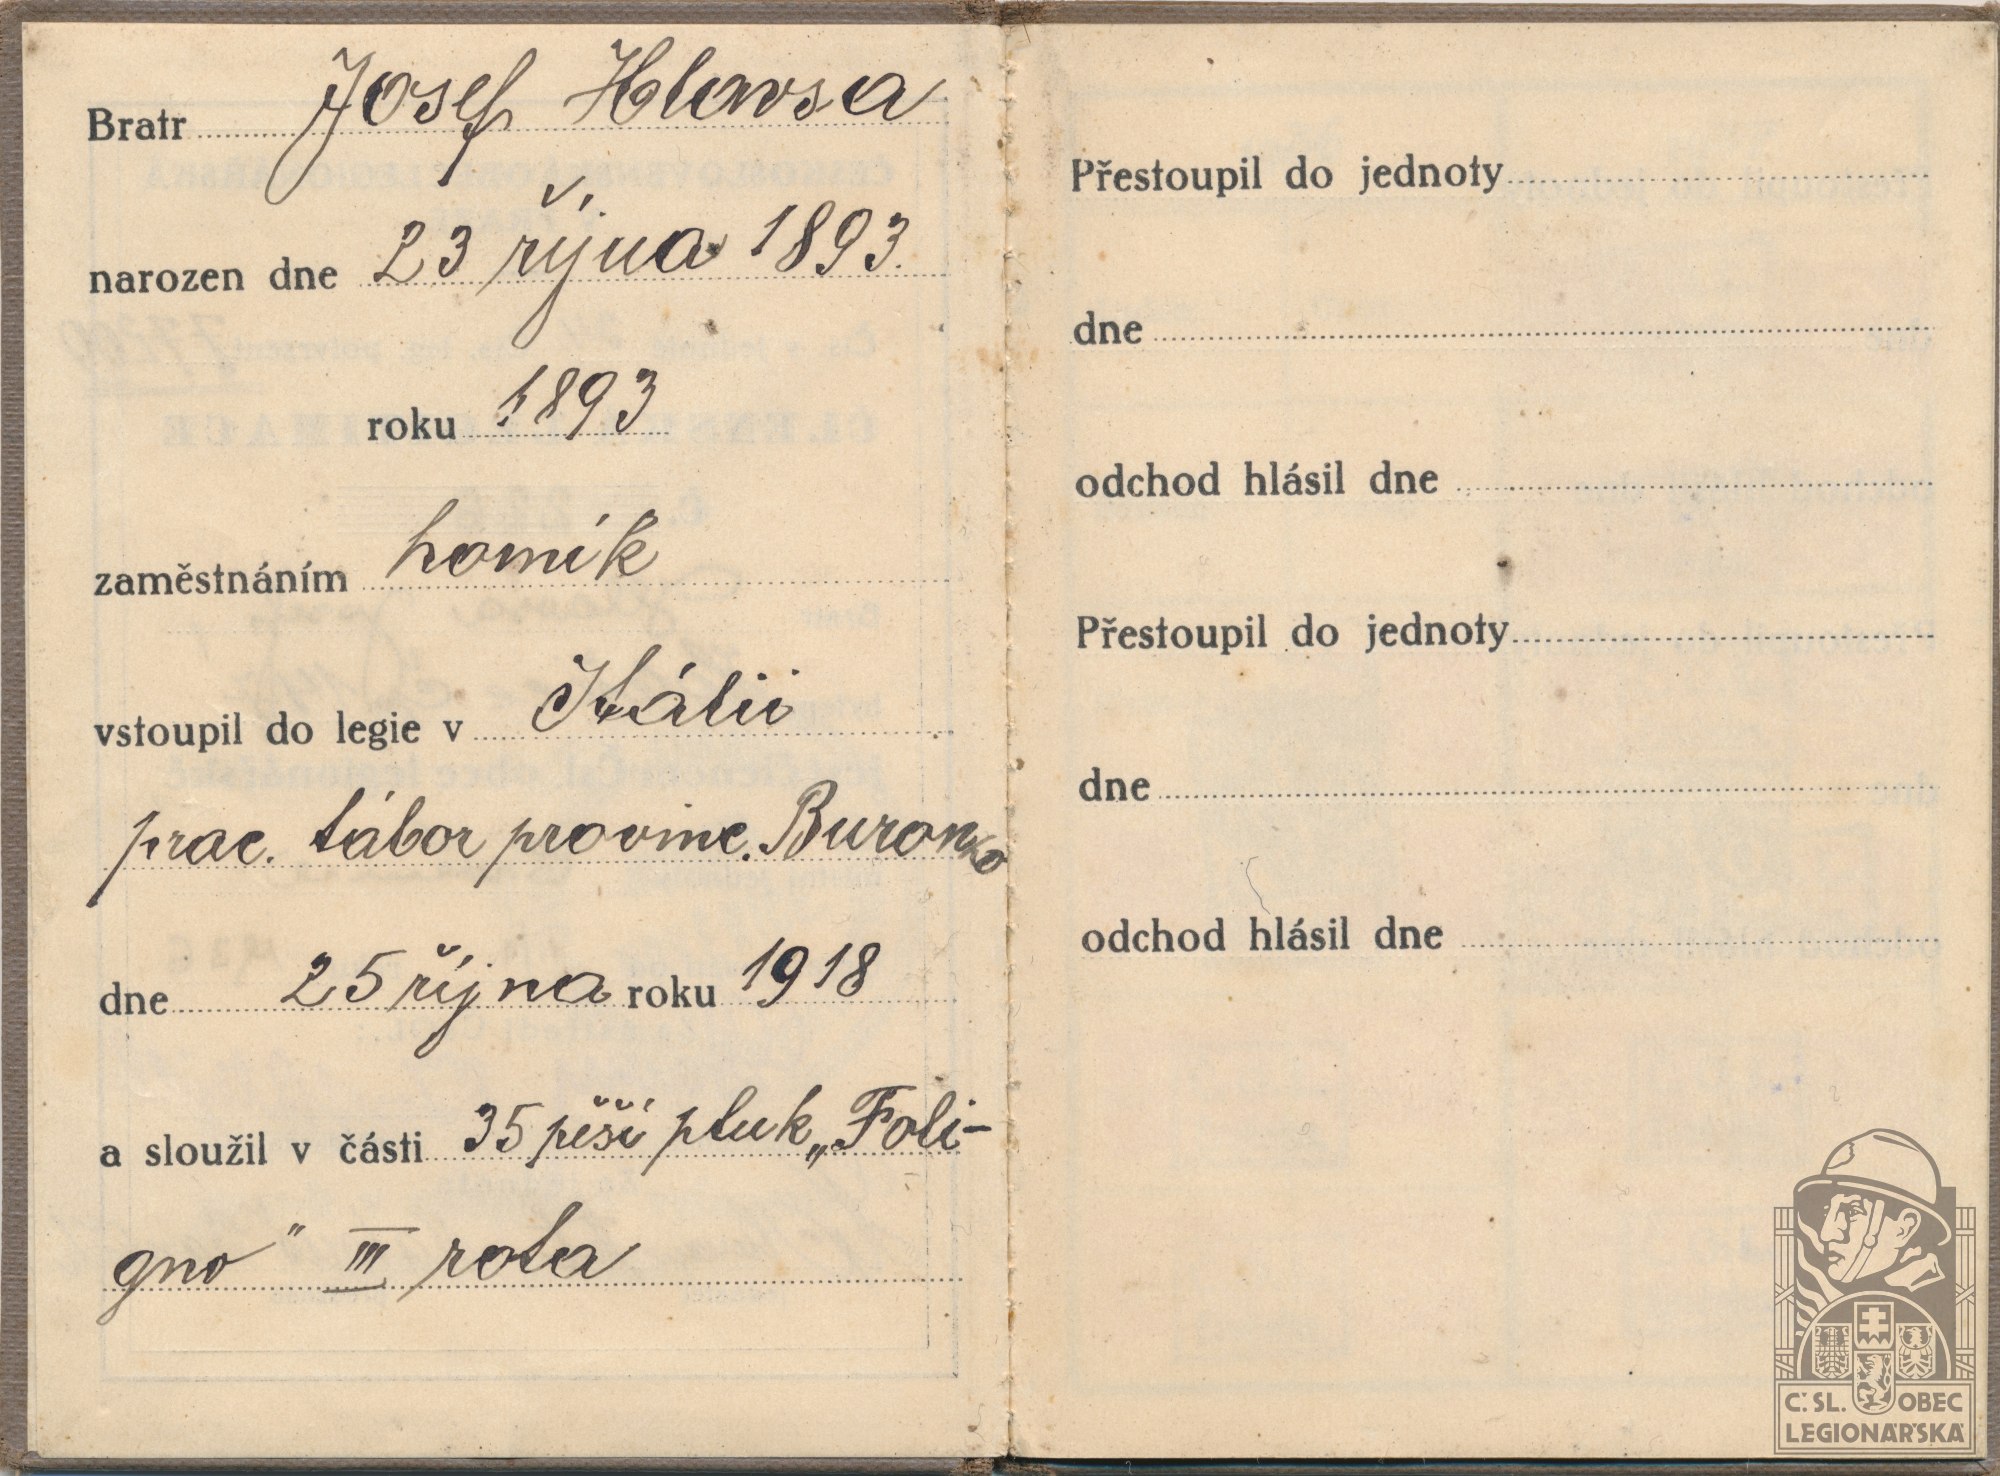 Bratr Josef Hlavsa
narozen dne 23 října 1893.
roku 1893
zaměstnáním horník
vstoupil do legie v Itálii
prac. tábor provinc. Buronzo
dne 25 října roku 1918
a sloužil v části 35 pěší pluk „Foli-
gno" III rota
Přestoupil do jednoty
dne
odchod hlásil dne
Přestoupil do jednoty
dne
odchod hlásil dne
Č. SL. OBEC
LEGIONÁŘSKÁ